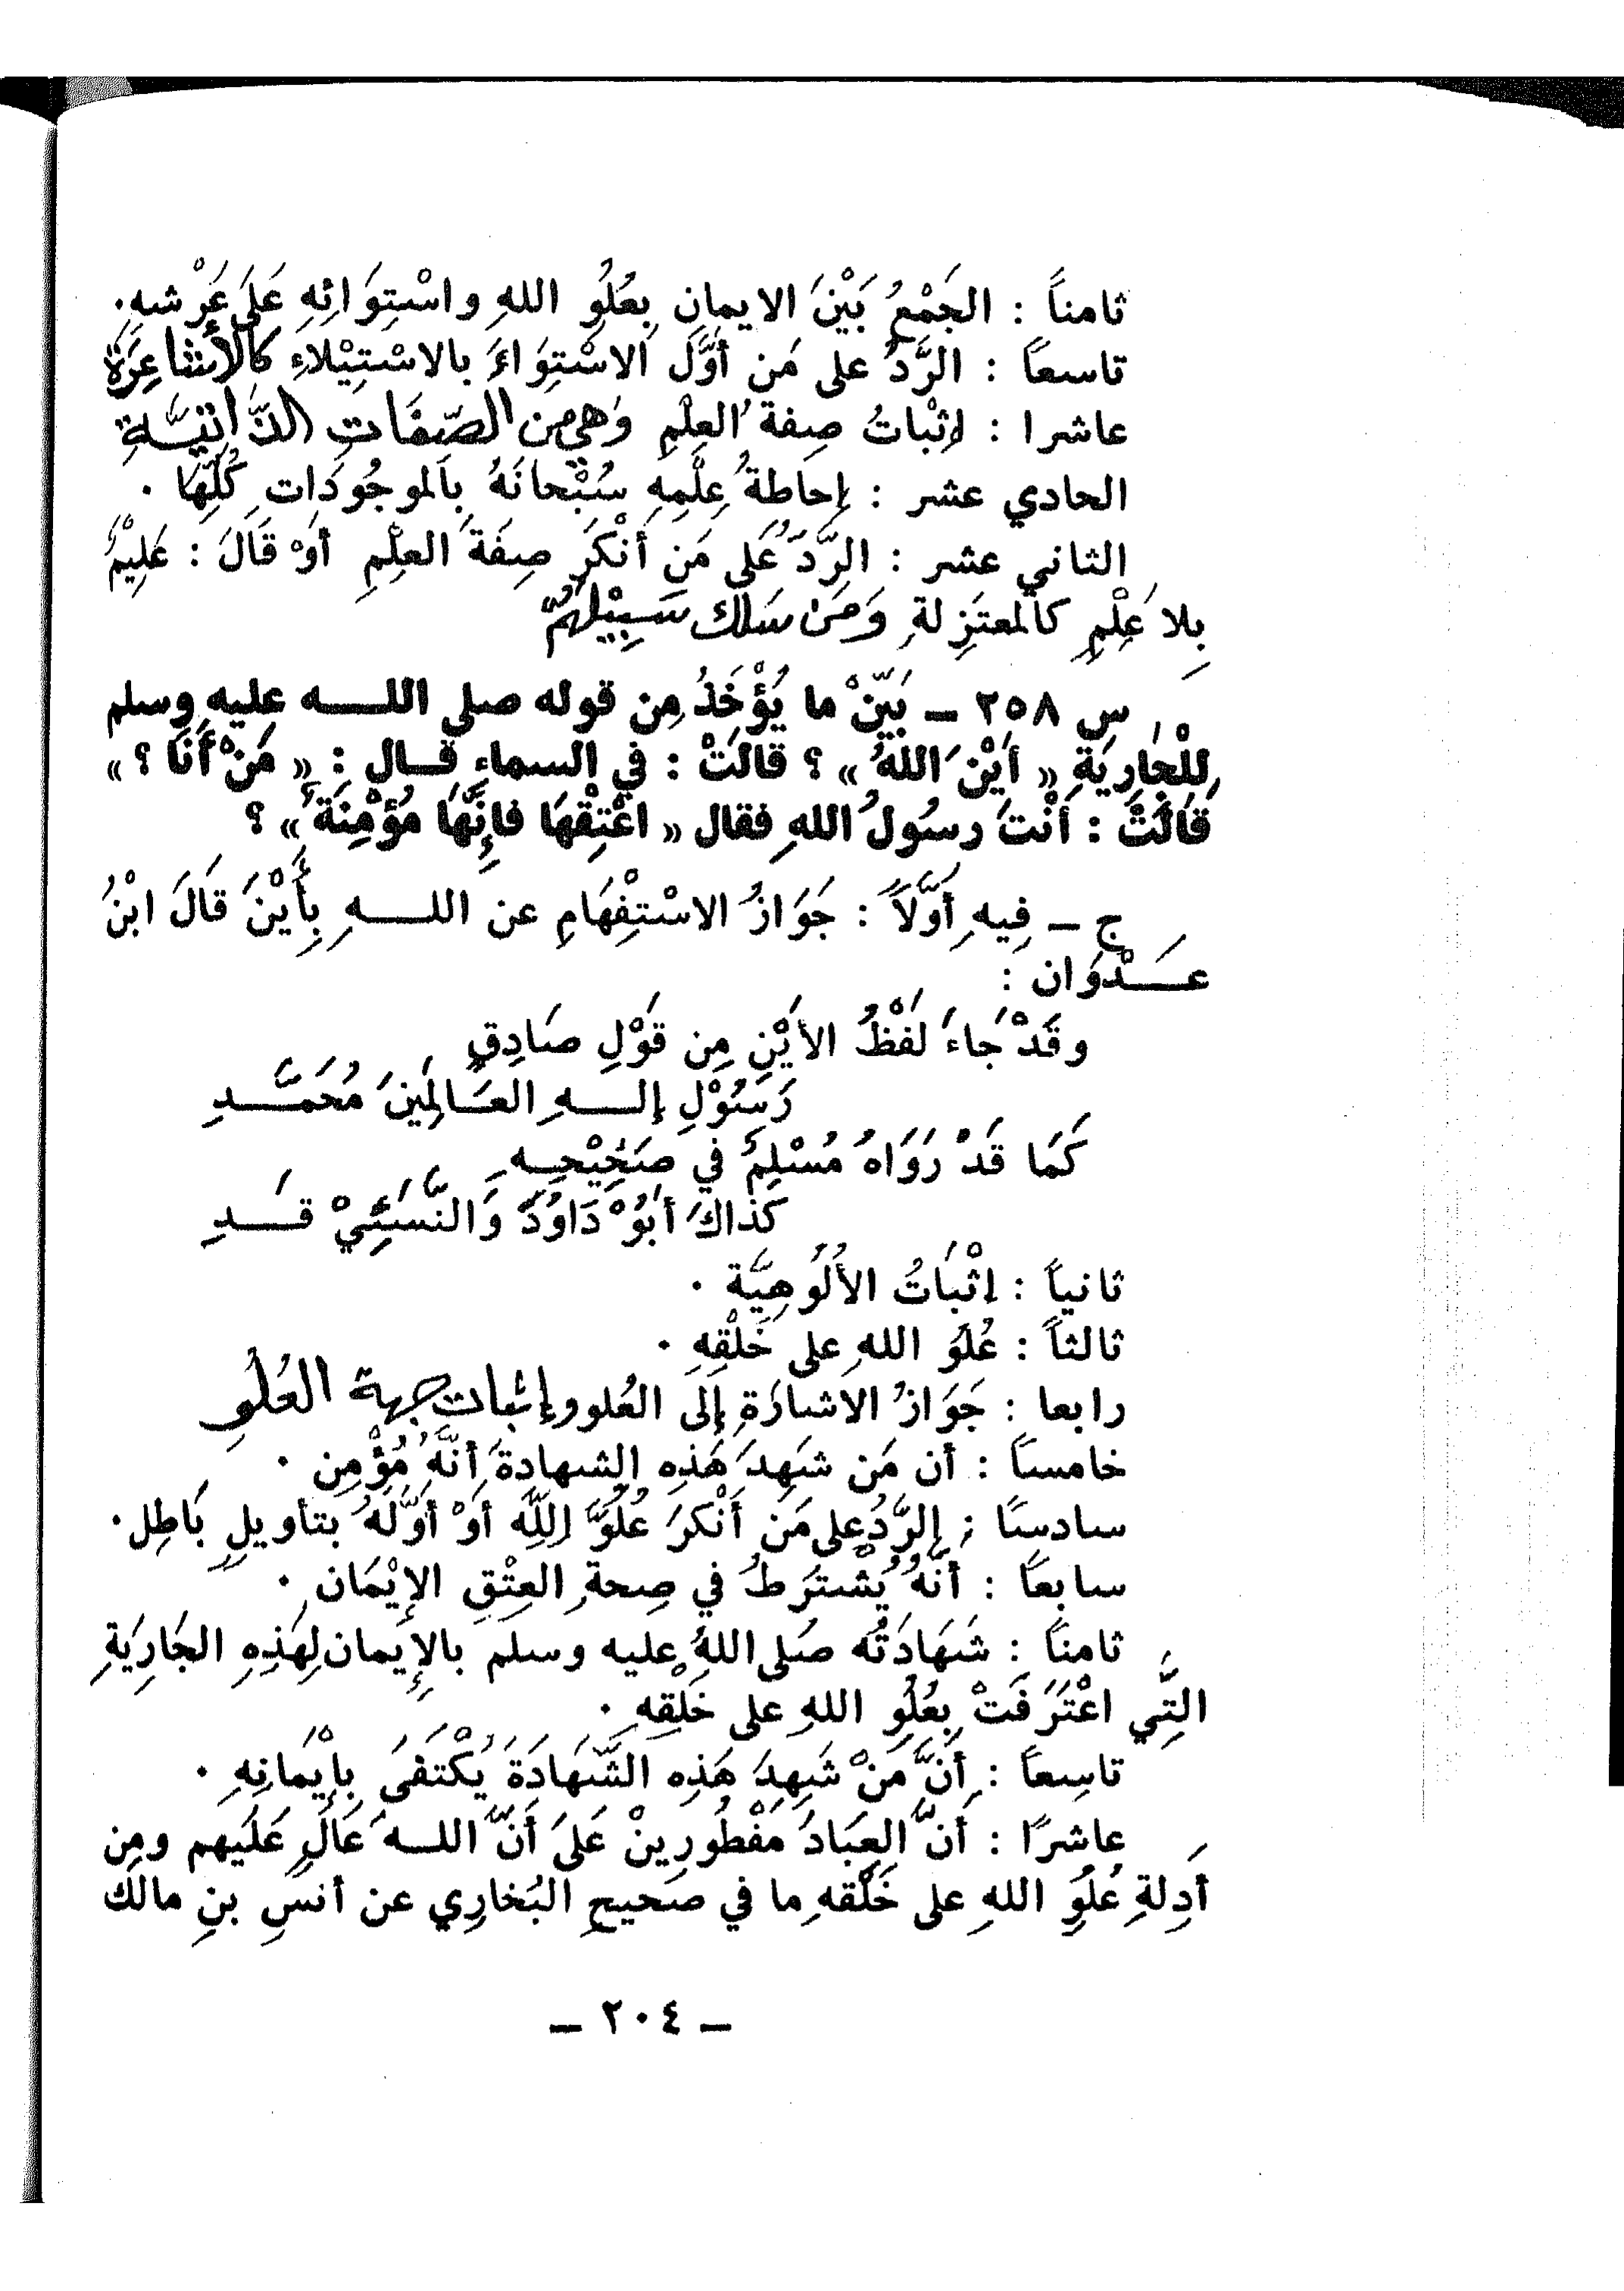 ثامناً : الجَمْعُ بَيْنَ الايمانِ بِعُلُوِ اللهِ واسْتِوَائِهِ عَلَى عَرْشهِ.
تاسعاً : الرَّدُ على مَن أوَّلَ الاسْتِوَاءَ بالاسْتِيْلاءِ كالأشاعِرَةِ
عاشرا : اِثْباتُ صِفةُ العِلْمِ وَهي من الصِّفَاتِ الذَّاتِيَّةِ
الحادي عشر : إحاطةُ عِلْمِهِ سُبْحانَهُ بالموجُودَاتِ كُلِّهَا .
الثاني عشر : الرَّدُ عَلى مَن أَنْكَرَ صِفَةَ العِلْمِ أوْ قَالَ : عَلِيْمٌ
بِلا عِلْمٍ كالمعتَزِلةِ وَمَن سَلَكَ سَبِيْلَهُمْ
س ٢٥٨ ــ بَيّنْ ما يُؤْخَذُ مِن قوله صلى اللــــه عليه وسلم
لِلْجارِيَةِ « أَيْنَ اللهُ » ؟ قالَتْ : في السماءِ قــال : « مَنْ أَنَا ؟ »
قَالَتْ : أَنْتَ رسُولُ اللهِ فقال « اعْتِقْهَا فإِنَّهَا مُؤْمِنَة » ؟
ج ــ فِيهِ أَوَّلاً : جَوَازُ الاسْتِفْهَامِ عن اللــــهِ بِأَيْنَ قَالَ ابْنُ
عَــــدْوَان :
وقَدْ جَاءَ لَفْظُ الأيْنِ مِن قَوْلِ صَادِقٍ
رَسُوْلِ إلــــهِ العَــالَمِينَ مُحَمَّــــدِ
كَمَا قَدْ رَوَاهُ مُسْلِمٌ في صَحِيْحِــهِ
كَذَاكَ أبُوْ دَاوُدَ وَالنَّسَئِيْ قَــــدِ
ثانياً : اِثْبَاتُ الأُلُوهِيَّة .
ثالثاً : عُلُوُ اللهِ على خَلْقِهِ .
رابعا : جَوَازُ الاشارَةِ إلَى العُلو وإثبات جهة العُلْوِ
خامساً : أن مَن شَهِدَ هَذِهِ الشهادةَ أنَّهُ مُؤْمِن .
سادسًا : الرَّدُ على مَن أَنْكَرَ عُلُوَّ اللَّه أوْ أوَّلَهُ بتأويلٍ بَاطِل.
سابعاً : أنَّهُ يُشْتَرَطُ في صِحةِ العِتْقِ الإيْمَان .
ثامناً : شَهَادَتُه صَلى اللهُ عليه وسلم بالإِيمان لِهَذِهِ الجَارِيَةِ
التِّي اعْتَرَفَتْ بِعُلُوِ اللهِ على خَلْقِهِ .
تاسِعاً : أَنَّ مَنْ شَهِدَ هَذِه الشَّهَادَةَ يُكْتَفَى بإيْمانِهِ .
عاشرًا : أَنَّ العِبَادَ مَفْطُورِينْ عَلَى أَنَّ اللــهَ عَالٍ عَلَيهم ومِن
أَدِلةِ عُلُوِ اللهِ على خَلْقهِ ما في صَحيحِ البُخارِي عن أنسِ بنِ مالك
ــ ٢٠٤ ــ